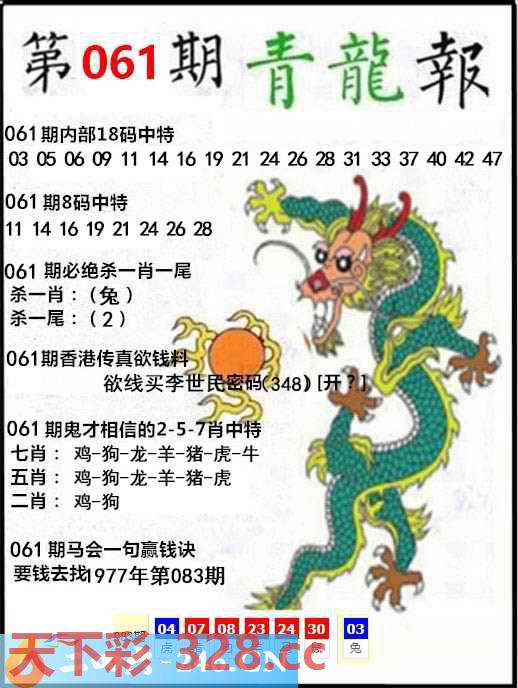 第061期青龍報
061期内部18码中特
03 05 06 09 11 14 16 19 21 24 26 28 31 33 37 40 42 47
061期8码中特
11 14 16 19 21 24 26 28
061期必绝杀一肖一尾
杀一肖：(兔)
杀一尾：(2)
061期香港传真欲钱料
欲线买李世民密码(348)[开?]
061期鬼才相信的2-5-7肖中特
七肖：鸡-狗-龙-羊-猪-虎-牛
五肖：鸡-狗-龙-羊-猪-虎
二肖：鸡-狗
061期马会一句赢钱诀
要钱去找1977年第083期
04 07 08 23 24 30 03
虎 兔
天下彩-328.cc